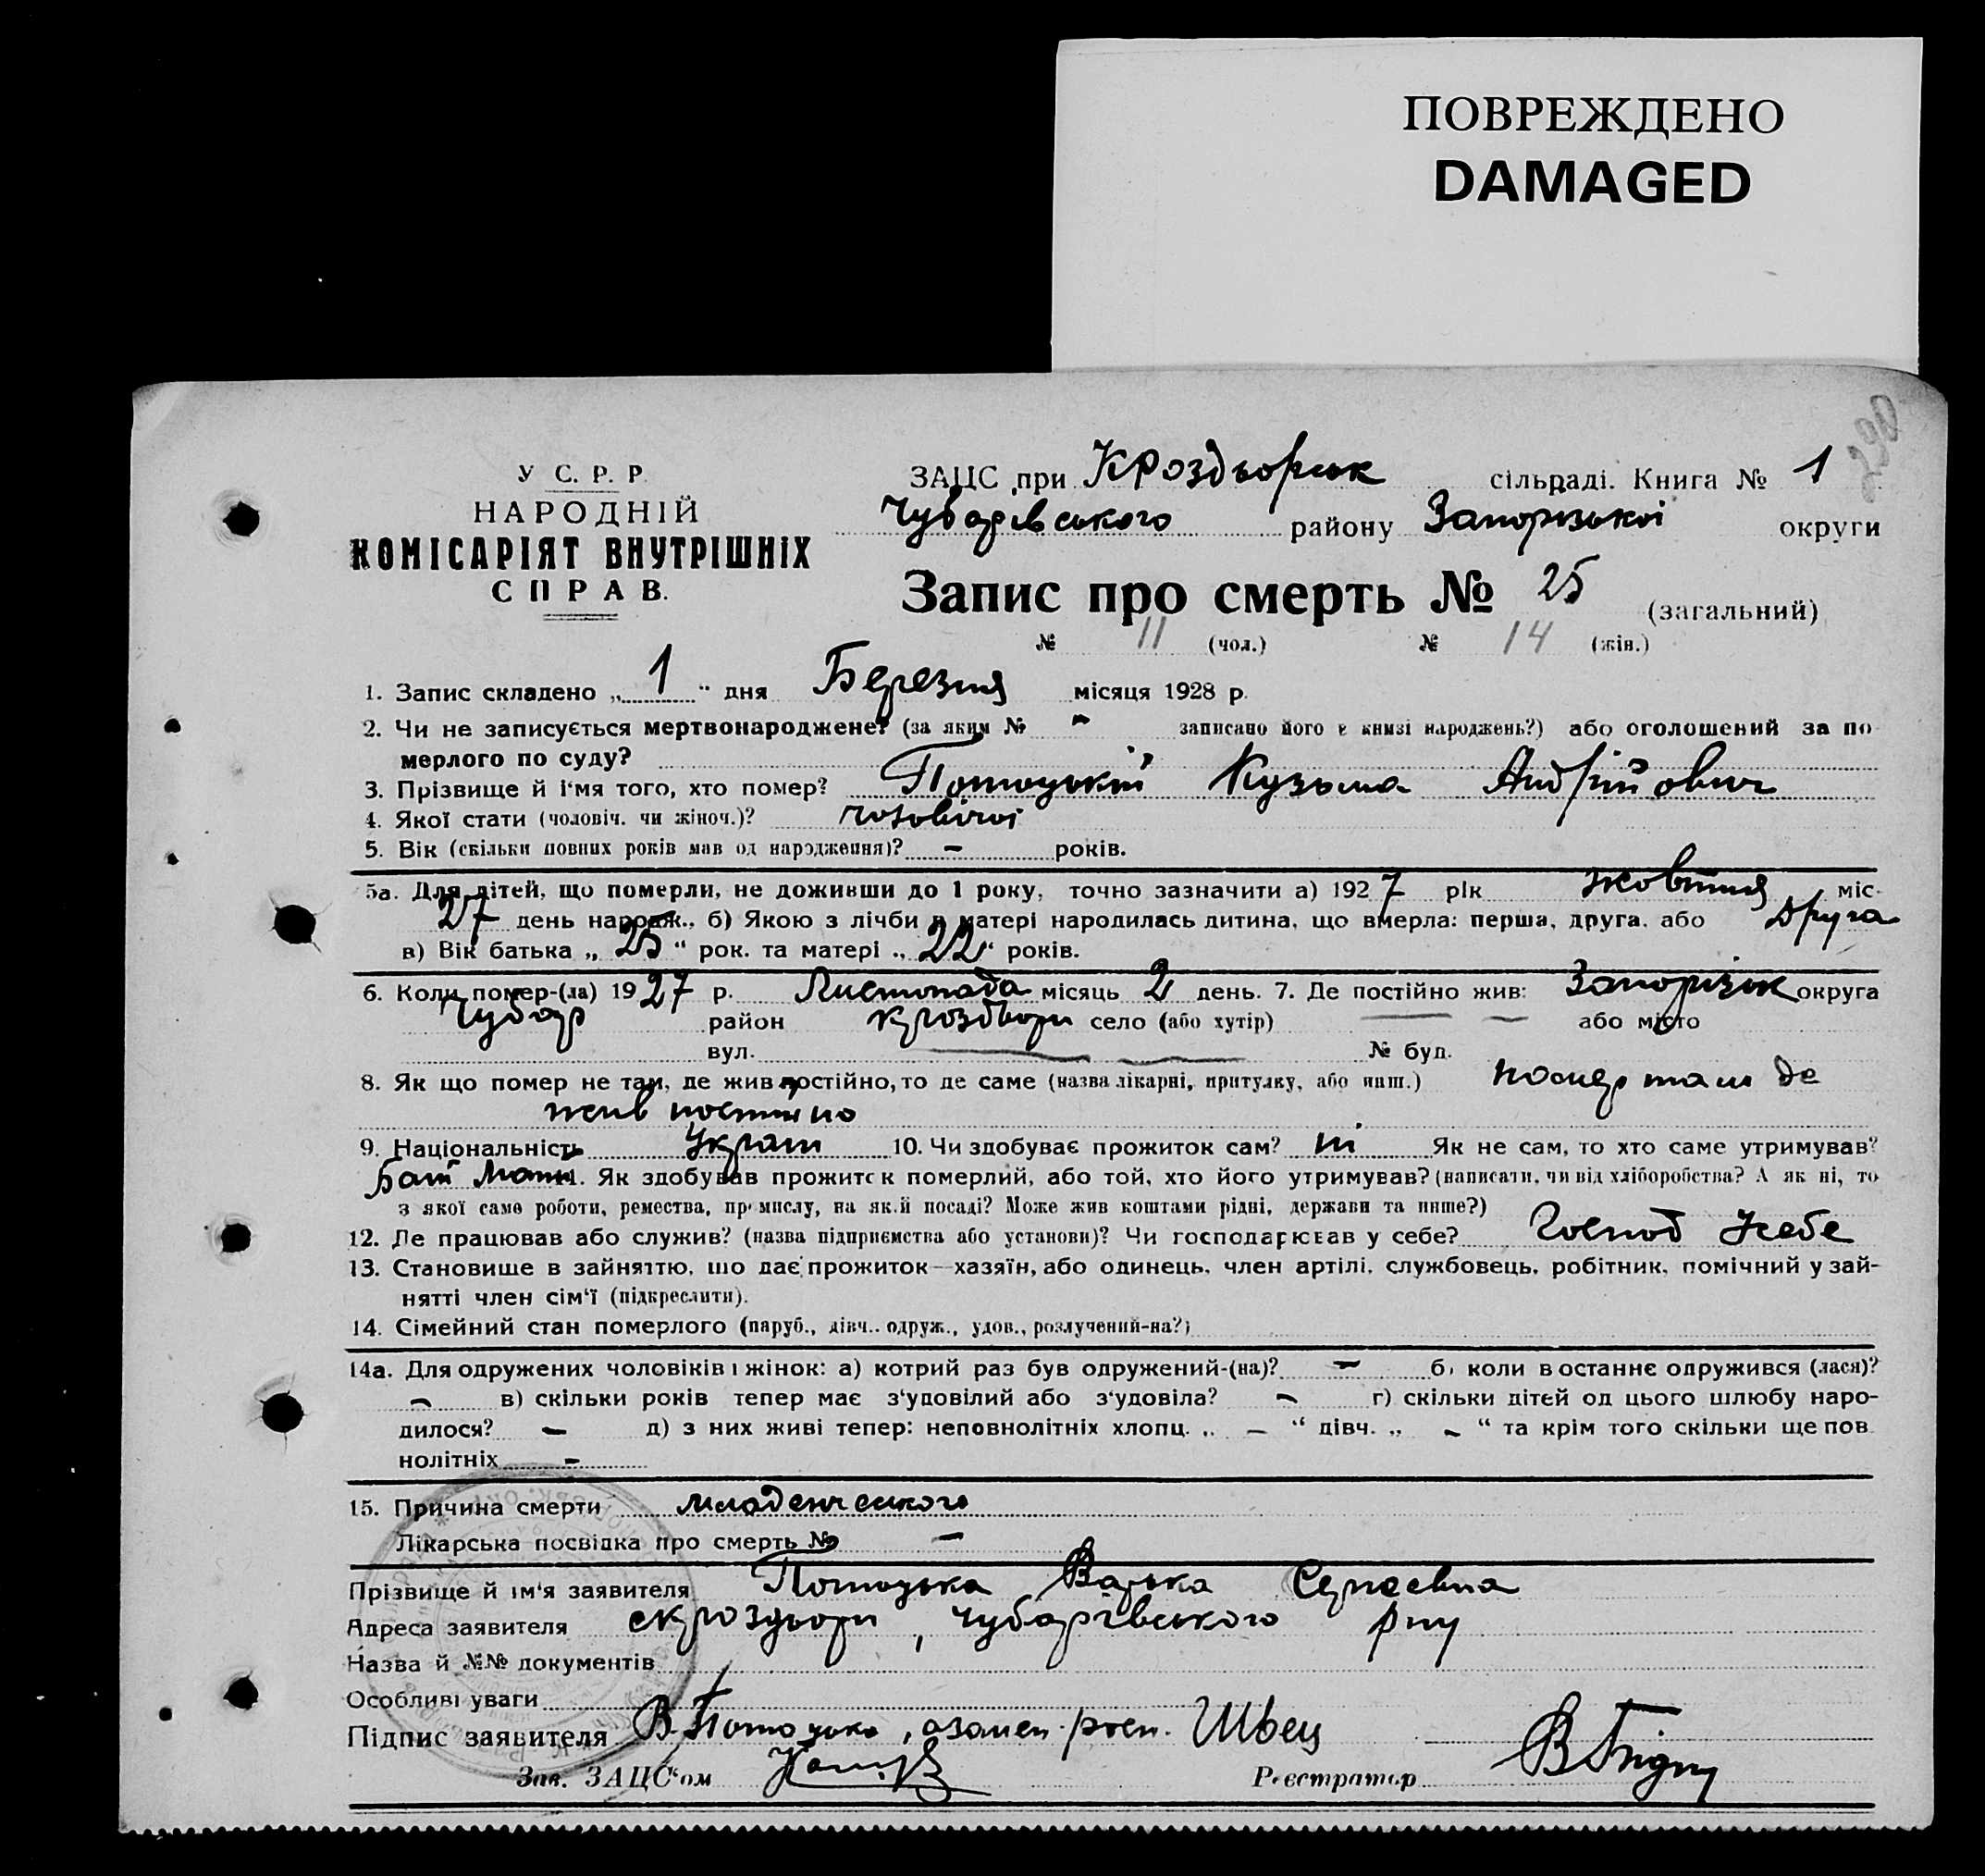 ПОВРЕЖДЕНО
DAMAGED
290
У С. Р. Р.
НАРОДНІЙ
КОМІСАРІЯТ ВНУТРІШНІХ
СПРАВ.
ЗАЦС при Кроздворськ сільраді. Книга № 1
Чубарівського району Запорізької округи
Запис про смерть № 25 (загальний)
№ 11 (чол.) № 14 (жін.)
1. Запис складено „ 1 “ дня Березня місяця 1928 р.
2. Чи не записується мертвонароджене? (за яким № - записано його в книзі народжень?) або оголошений за по-
мерлого по суду?
3. Прізвище й і'мя того, хто помер? Потоцькій Кузьма Андрійович
4. Якої стати (чоловіч. чи жіноч.)? чоловічої
5. Вік (скільки повних років мав од народження)? - років.
5а. Для дітей, що померли, не доживши до 1 року, точно зазначити а) 1927 рік жовтня міс.
27 день народж., б) Якою з лічби в матері народилась дитина, що вмерла: перша, друга, або друга
в) Вік батька „ 25 “ рок. та матері „ 22 “ років.
6. Коли помер-(ла) 1927 р. Листопада місяць 2 день. 7. Де постійно жив: Запоріжск округа
Чубар район Кроздвори село (або хутір) — — або місто
вул. — — № буд.
8. Як що помер не там, де жив постійно, то де саме (назва лікарні, притулку, або инш.) помер там де
жив постійно
9. Національність Украін 10. Чи здобуває прожиток сам? ні Як не сам, то хто саме утримував?
Бат Мати. Як здобував прожиток померлий, або той, хто його утримував? (написати, чи від хліборобства? А як ні, то
з якої саме роботи, ремества, промислу, на якій посаді? Може жив коштами рідні, держави та инше?)
12. Де працював або служив? (назва підприємства або установи)? Чи господарював у себе? Господ Усебе
13. Становище в зайняттю, що дає прожиток—хазяїн, або одинець, член артілі, службовець, робітник, помічний у зай-
нятті член сім'ї (підкреслити).
14. Сімейний стан померлого (паруб., дівч.. одруж., удов., розлучений-на?)
14а. Для одружених чоловіків і жінок: а) котрий раз був одружений-(на)? - б) коли востаннє одружився (лася)?
- в) скільки років тепер має з'удовілий або з'удовіла? - г) скільки дітей од цього шлюбу наро-
дилося? - д) з них живі тепер: неповнолітніх хлопц. „ - “ дівч. „ - “ та крім того скільки ще пов
нолітніх -
15. Причина смерти младенческого
Лікарська посвідка про смерть № -
Прізвище й ім'я заявителя Потоцька Варька Сергеевна
Адреса заявителя с Кроздвори, Чубарівського р ну
Назва й №№ документів
Особливі уваги
Підпис заявителя В. Потоцька, Швец
Зав. ЗАЦС'ом Реєстратор